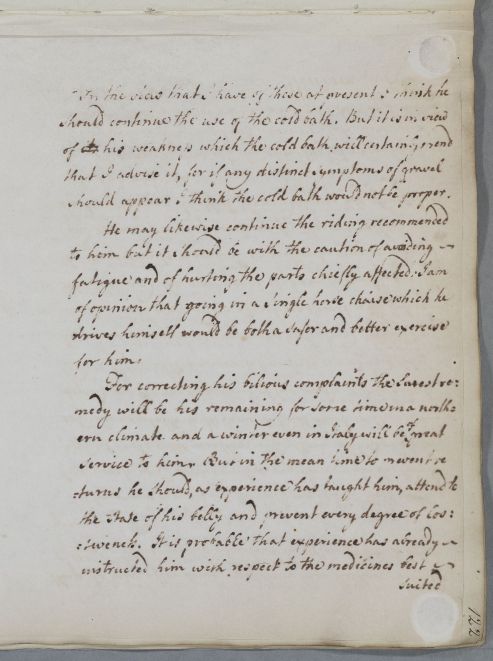 In the view that I have of these at present I think he
should continue the use of the cold bath. But it is in view
of his weakness which the cold bath will certainly mend
that I advise it, for if any distinct symptoms of gravel
should appear I think the cold bath would not be proper.
He may likewise continue the riding recommended
to him but it should be with the caution of avoiding ~
fatigue and of hurting the parts chiefly affected. I am
of opinion that going in a single horse chaise which he
drives himself would be both a safer and better exercise
for him.
For correcting his bilious complaints the surest re=
medy will be his remaining for some time in a north=
ern climate and a winter even in Italy will be of great
service to him. But in the mean time to prevent re
=turns he should, as experience has taught him, attend to
the state of his belly and prevent every degree of Cos=
=tiveness. It is probable that experience has already ~
instructed him with respect to the medicines best ~
suited
122